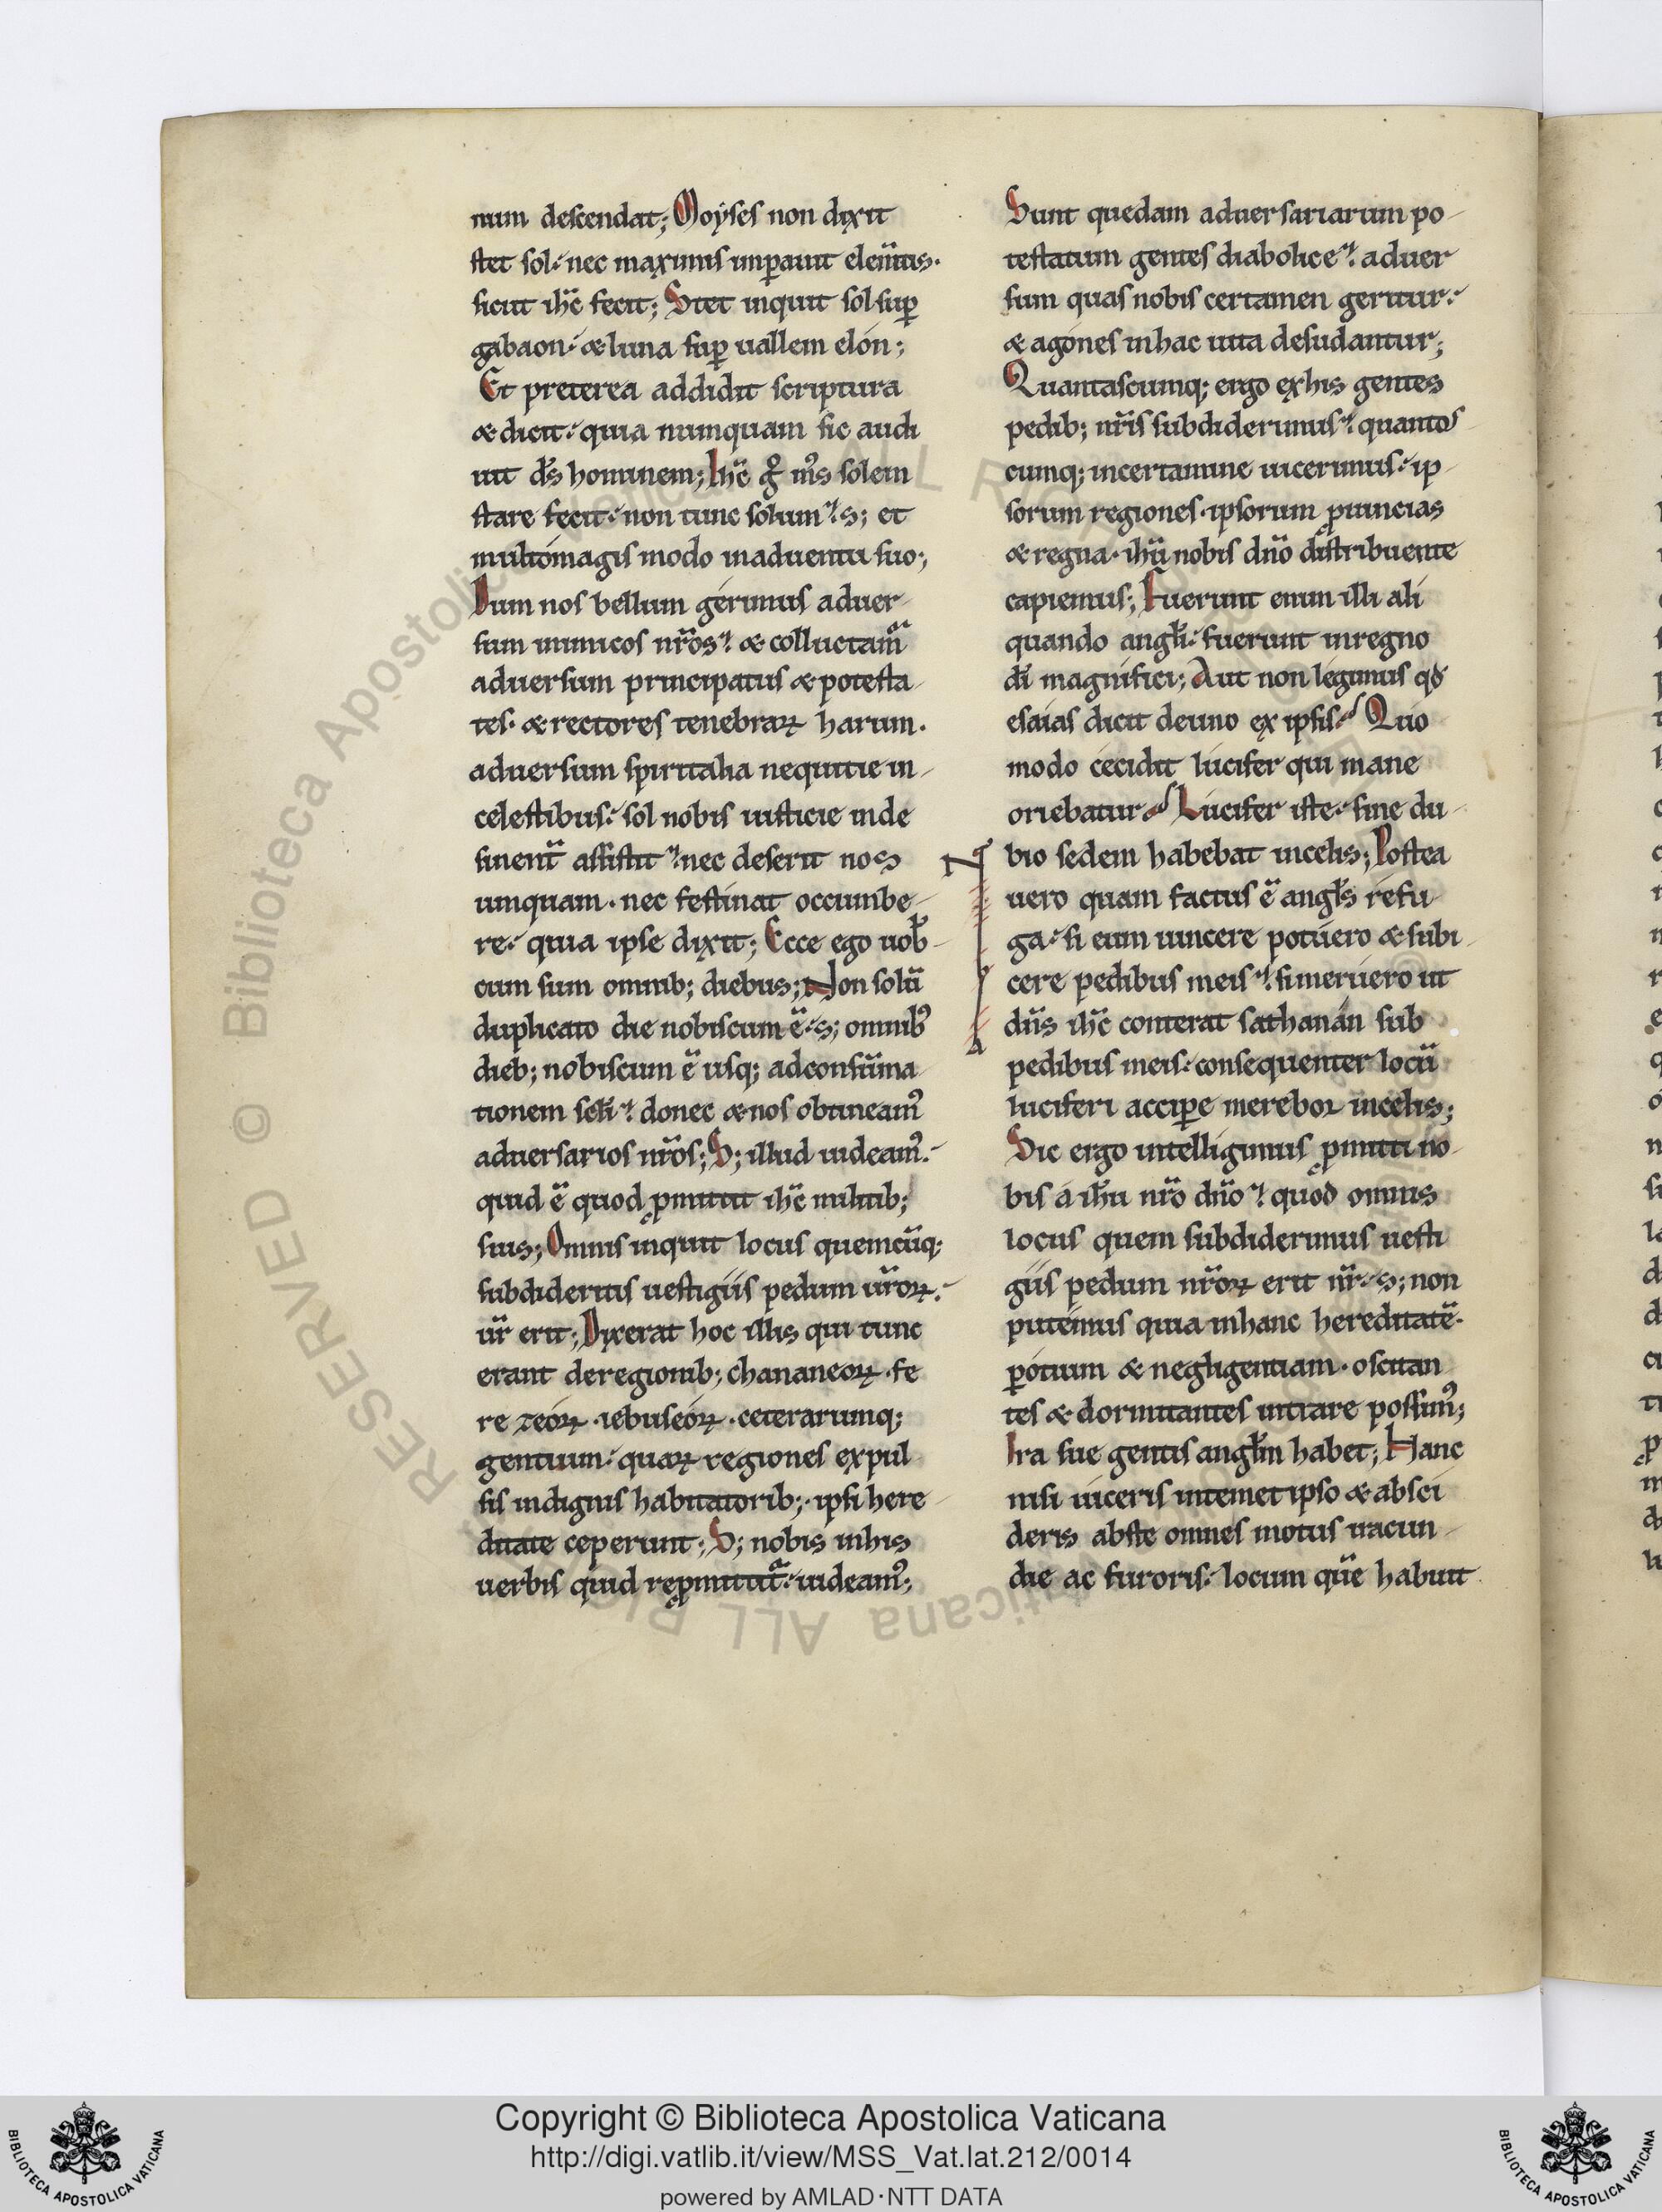 num descendat; Moyses non dixit
stet sol. nec maximis imꝑauit elem̅tis.
sicut ih̅c fecit; Stet inquit sol suꝑ
gabaon. & luna suꝑ uallem elon;
Et preterea addidit scriptura
& dicit. quia numquam sic audi
uit d̅s hominem; Ih̅c gͦ m̅s solem
stare fecit. non tunc solum. s; et
multo magis modo in aduentu suo;
Dum nos bellum gerimus aduer-
sum inimicos nr̅os. & colluctamᷓ
aduersum principatus & potesta-
tes. & rectores tenebraꝝ harum.
aduersum spiritalia nequitie in-
celestibus. sol nobis iusticie inde
sinent̅ assistit. nec deserit nos
umquam. nec festinat occumbe-
re. quia ipse dixit; Ecce ego uob̅-
cum sum omnib; diebus; Non solu̅
duplicato die nobiscum e̅. s; omnib᾽
dieb; nobiscum e̅ usq; ad consu̅ma-
tionem sc̅li. donec & nos obtineam᾽
aduersarios nr̅os; S; illud uideam᾽.
quid e̅ quod ꝓmittit ih̅c militib;
suis; Omnis inquit locus quemcu̅q;
subdideritis uestigiis pedum ur̅oꝝ.
ur̅ erit; Dixerat hoc illis qui tunc
erant de regionib; chananeoꝝ. fe
rezeoꝝ. iebuseoꝝ. ceterarumq;
gentium. quaꝝ regiones expul
sis indignis habitatorib;. ipsi here-
ditate ceperunt; S; nobis in his
uerbis quid reꝓmittitᷓ. uideam᾽;
Sunt quedam aduersariarum po-
testatum gentes diabolice. aduer
sum quas nobis certamen geritur.
& agones in hac uita desudantur;
Quantascumq; ergo ex his gentes
pedib; nr̅is subdiderimus. quantos
cumq; in certamine uicerimus. ip-
sorum regiones. ipsorum ꝓuincias
& regna. ih̅u nobis dn̅o distribuente
capiemus; Fuerunt enim illi ali
quando angl̅i. fuerunt in regno
di̅ magnifici; Aut non legimus qđ
esaias dicit de uno ex ipsis. Quo
modo cecidit lucifer qui mane
oriebatur. Lucifer iste. sine du-
bio sedem habebat in celis; Postea
uero quam factus e̅ angl̅s refu-
ga. si eum uincere potuero & subi-
cere pedibus meis. si meruero ut
dn̅s ih̅c conterat sathanan sub
pedibus meis. consequenter locu̅
luciferi acciꝑe merebor in celis;
Sic ergo intelligimus ꝓmitti no-
bis a ih̅u nr̅o dn̅o. quod omnis
locus quem subdiderimus uesti
giis pedum nr̅oꝝ erit nr̅. s; non
putemus quia in hanc hereditate̅.
ꝑ otium & negligentiam. oscitan
tes & dormitantes intrare possim᾽;
Ira sue gentis angl̅m habet; Hanc
nisi uiceris in temet ipso & absci
deris abs te omnes motus iracun-
die ac furoris. locum que̅ habuit
Copyright © Biblioteca Apostolica Vaticana
http://digi.vatlib.it/view/MSS_Vat.lat.212/0014
powered by AMLAD·NTT DATA
BIBLIOTECA APOSTOLICA VATICANA
BIBLIOTECA APOSTOLICA VATICANA